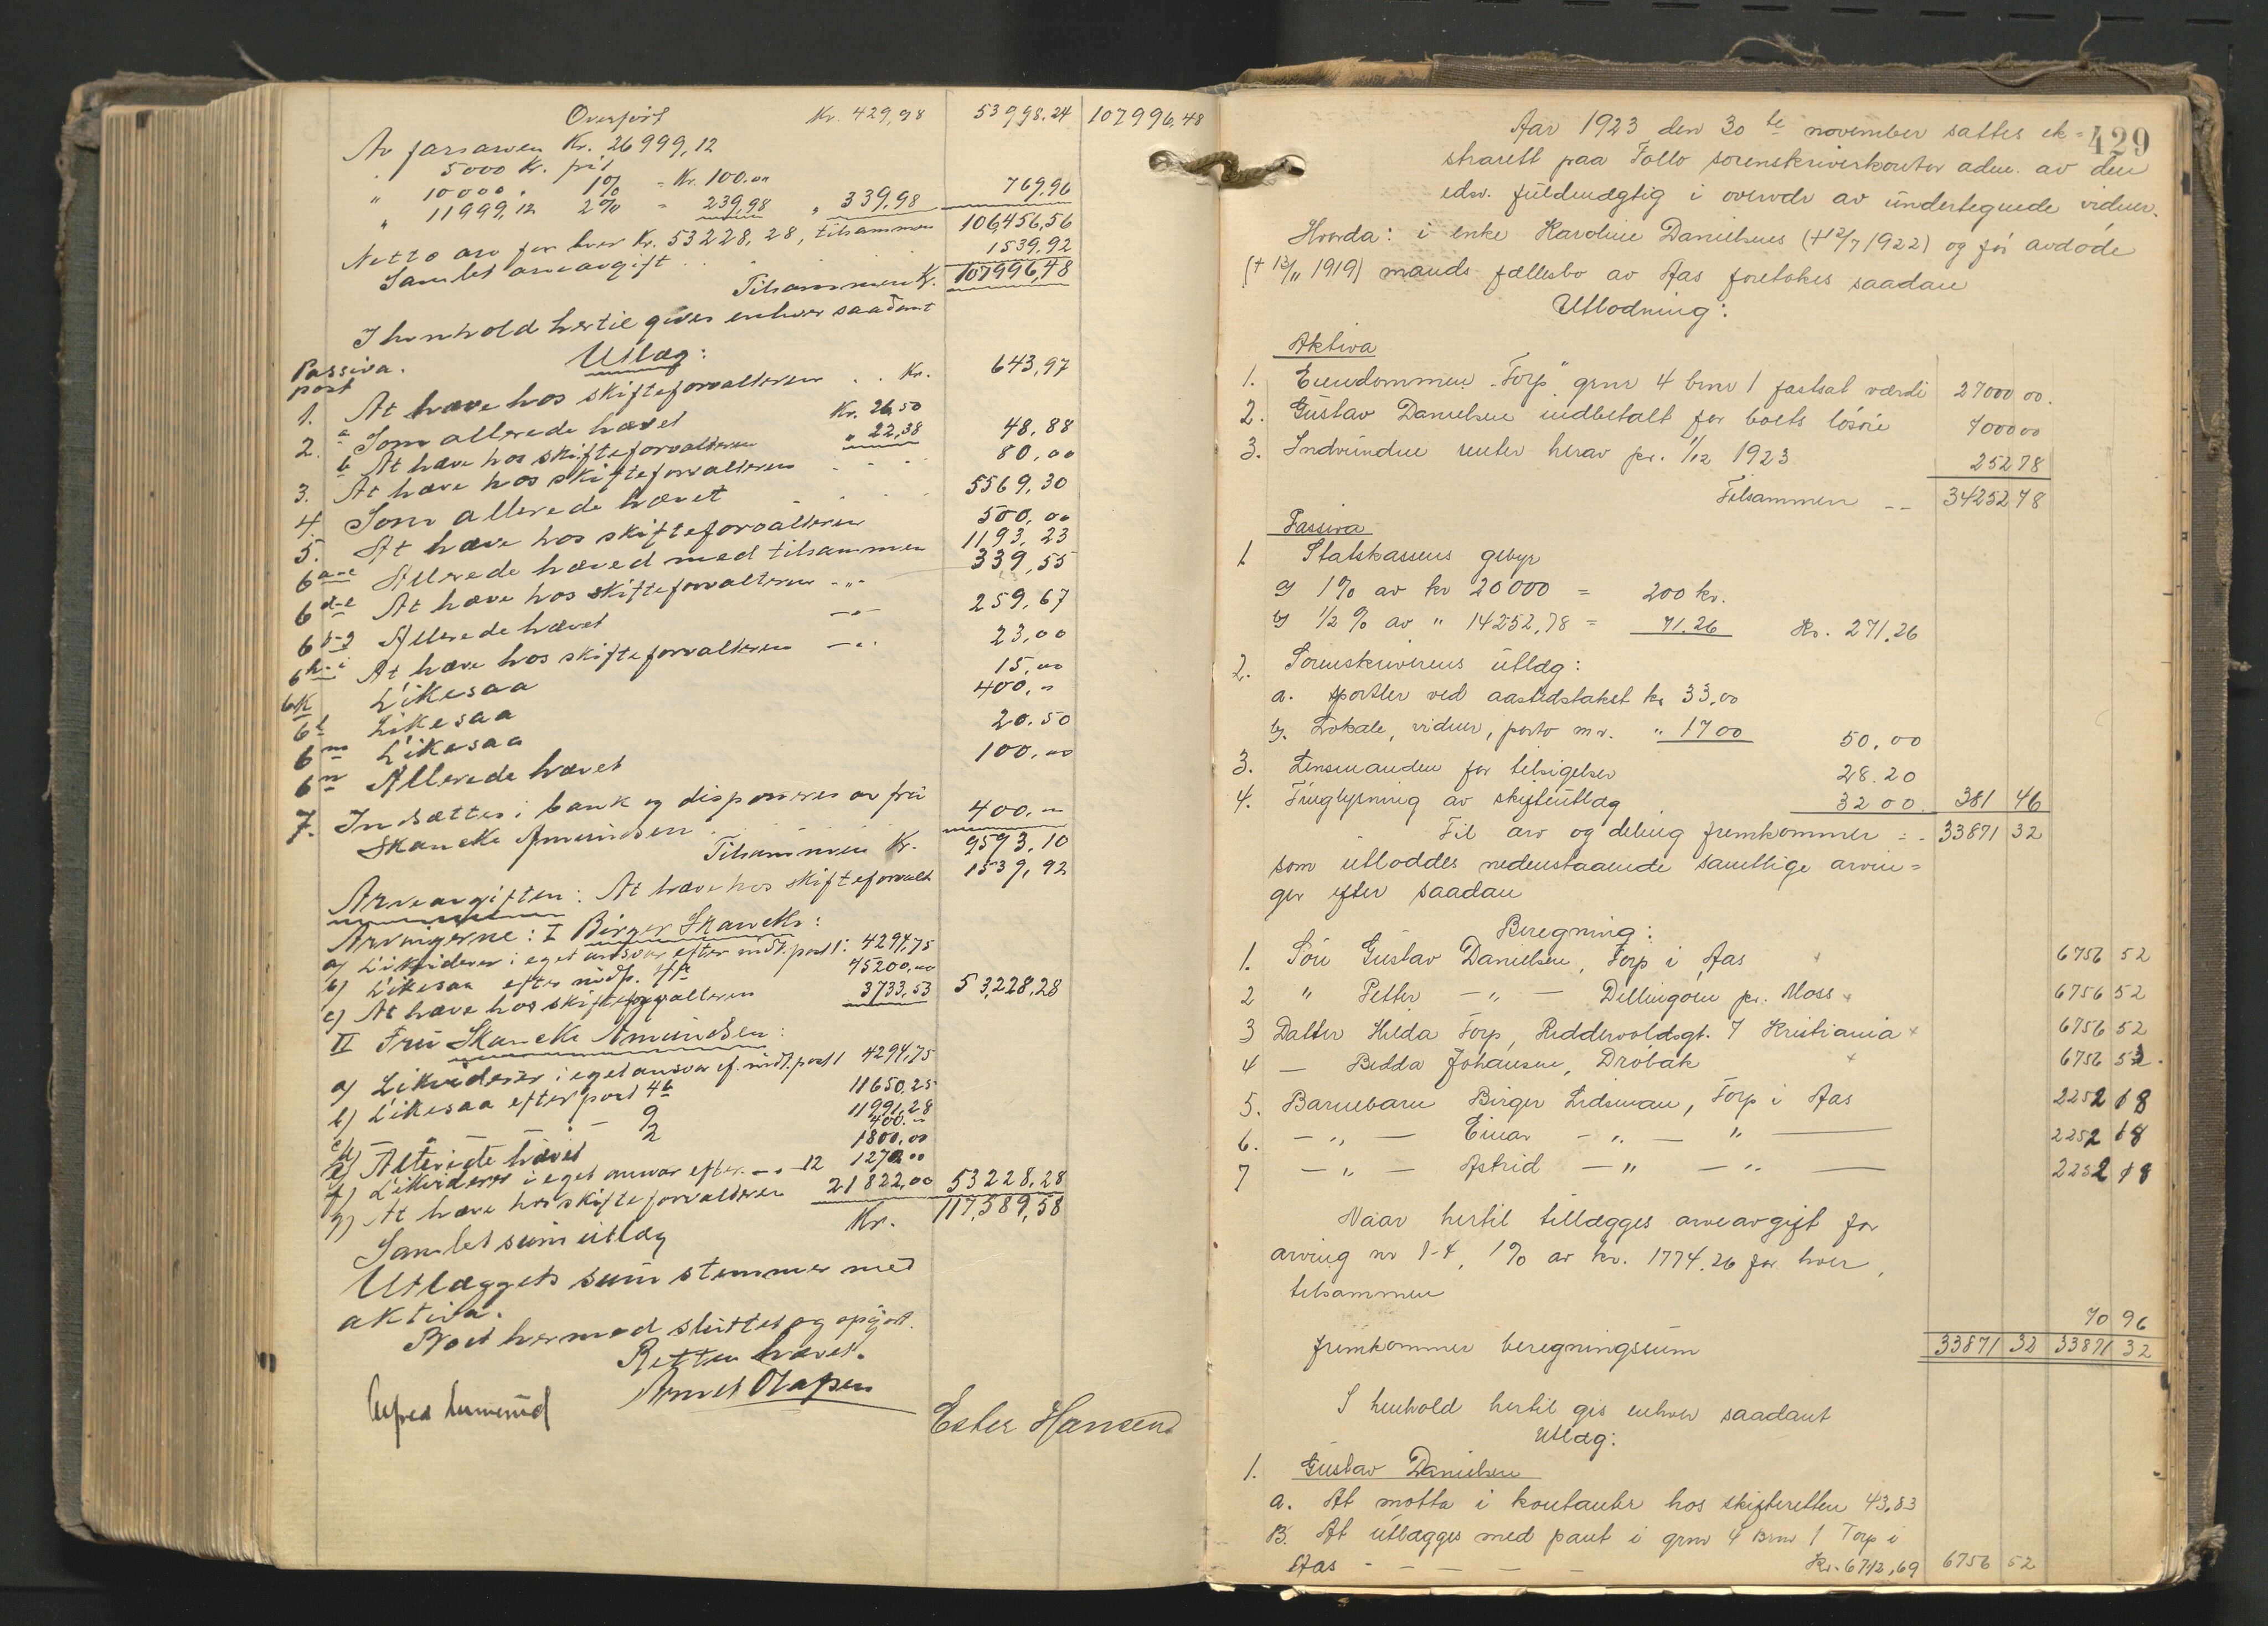 Overført Kr. 429,98 53998.24 107996,48
Av farsarven Kr. 26999,12
5000 Kr. fri
" 10000 . 1% = Kr. 100.00
" 11999,12 2% = 239,98 " 339,98 769,96
Netto arv for hver Kr. 53228,28, tilsammen 106,456,56
Samlet arveavgift 1539,92
Tilsammen Kr. 107996,48
I henhold hertil gives enhver saadant
Utlæg:
Passiva.
post
1. At hæve hos skifteforvalteren . . Kr. 643,97
2. a Som allerede hævet Kr. 26,50
b At hæve hos skifteforvalteren " 22,38 48,88
3. At hæve hos skifteforvalteren 80,00
4. Som allerede hævet 5569,30
5. At hæve hos skifteforvalteren 500,00
6 Allerede hæved med tilsammen 1193,23
6 d-e At hæve hos skifteforvalteren -"- 339,55
6 f-g Allerede hævet -"- 259,67
6 h-i At hæve hos skifteforvalteren -"- 23,00
6 k Likesaa 15,00
6 l Likesaa 400,-
6 m Likesaa 20.50
6 n Allerede hævet 100,00
7. Indsættes i bank og disponeres av fru
Skancke Amundsen 400.-
Tilsammen Kr. 9593,10
Arveavgiften: At hæve hos skifteforvalt 1539,92
Arvingerne: I Birger Skancke:
a) Likviderer i eget ansvar efter indt. post 1: 4294,75
b) Likesaa efter indt. 4a 45200,00
c) At hæve hos skifteforvalteren 3733,53 53,228,28
II Fru Skancke Amundsen:
a) Likviderer i eget ansvar ef. indt. post 1 4294,75
b) Likesaa efter post 4b 11650,25
c) - " - 9 11991,28
d) - " - 2 400.-
e) Allerede hævet 1800,00
f) Likviderer i eget ansvar efter -"- 12 1270.00
g) At hæve hos skifteforvalteren 21822,00 53228,28
Samlet sum utlæg Kr. 117,589,58
Utlæggets sum stemmer med
aktiva.
Boet hermed sluttet og opgjort.
Retten hævet.
Arnet Olafsen
Ester Hansen
429
Aar 1923 den 30te november sattes ek=
straret paa Follo sorenskriverkontor adm. av den
edsv. fuldmægtig i overvær av undertegnede vidner.
Hvorda: i enke Karoline Danielsens (†12/7 1922) og før avdøde
(† 13/11 1919) mands fællesbo av Aas foretokes saadan
Utlodning:
Aktiva
1. Eiendommen "Torp" grnr 4 brnr 1 fastsat værdi 27000 00.
2. Gustav Danielsen indbetalt for boets løsøre 7000 00
3. Indvundne renter herav pr. 1/12 1923 252 78
Tilsammen -- 34252 78
Passiva
1 Statskassens gebyr
a) 1% av kr 20000 = 200 kr.
b) 1/2 % av " 14252,78 = 71.26 Kr. 271,26
2. Sorenskriverens utlæg:
a. Sportler ved aastedstakst kr 33,00
b. Lokale, vidner, porto m.v. " 17 00 50,00
3. Lensmanden for tilsigelser 28.20
4. Tinglysning av skifteutlæg 32 00. 381 46
Til arv og deling fremkommer = - 33871 32
som utloddes nedenstaaende samtlige arvin=
ger efter saadan
Beregning:
1. Søn Gustav Danielsen, Torp i Aas 6756 52
2 " Petter - " - Dillingøen pr. Moss 6756 52
3 Datter Hilda Torp, Riddervoldsgt. 7 Kristiania 6756 52
4 - Bedda Johansen, Drøbak 6756 52.
5. Barnebarn Birger Lidsman, Torp i Aas 2252 18
6. - " - Einar - " - " - 2252 18
7 - " - Astrid - " - " - 2252 18
Naar hertil tillægges arveavgift for
arving nr 1-4, 1% av kr. 1774.26 for hver,
tilsammen
70 96
fremkommer beregningssum 33871 32 33871 32
I henhold hertil gis enhver saadant
Utlæg:
1. Gustav Danielsen
a. At motta i kontanter hos skifteretten 43,83
B. At utlægges med pant i grnr 4 Brnr 1 Torp i
Aas - - - - - Kr. 6712,69 6756 52